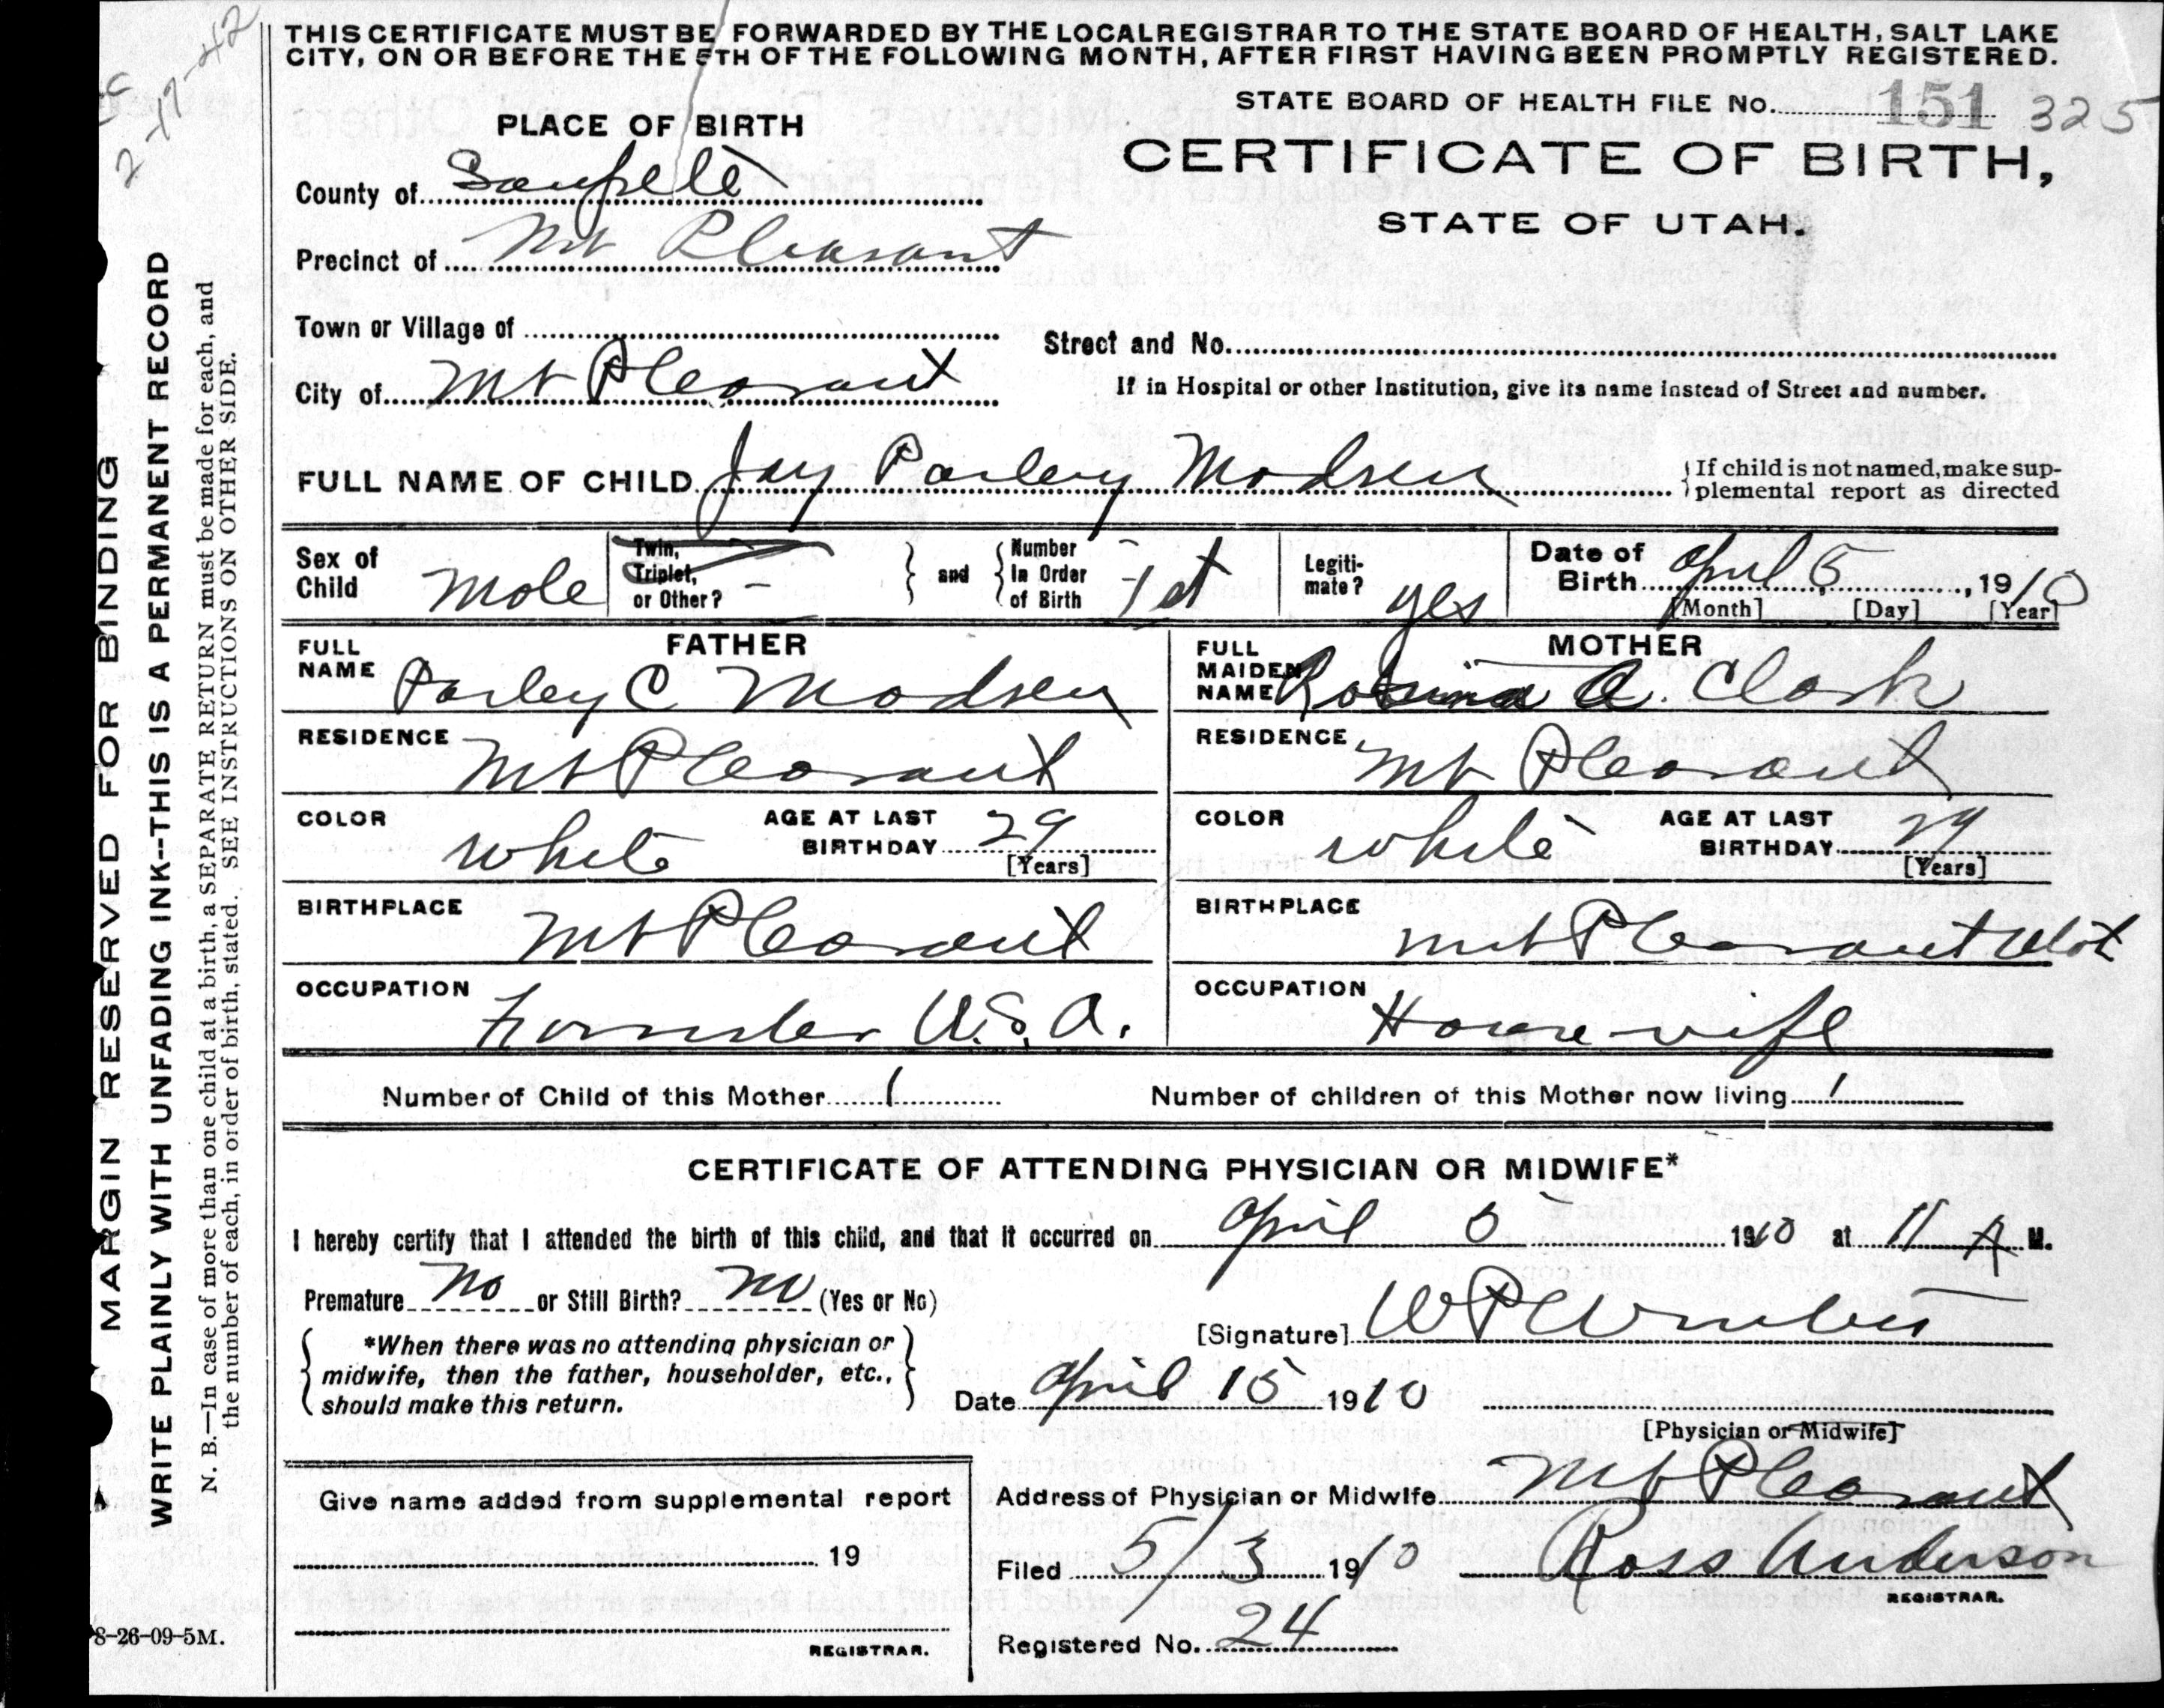 THIS CERTIFICATE MUST BE FORWARDED BY THE LOCAL REGISTRAR TO THE STATE BOARD OF HEALTH, SALT LAKE
CITY, ON OR BEFORE THE 5TH OF THE FOLLOWING MONTH, AFTER FIRST HAVING BEEN PROMPTLY REGISTERED.
2-17-42
STATE BOARD OF HEALTH FILE No. 151 325
PLACE OF BIRTH
CERTIFICATE OF BIRTH,
STATE OF UTAH.
County of Sanpete
Precinct of Mt Pleasant
Town or Village of
Street and No.
City of Mt Pleasant
If in Hospital or other Institution, give its name instead of Street and number.
FULL NAME OF CHILD Jay Parley Madsen
If child is not named, make sup-
plemental report as directed
Sex of Child Male
Twin, Triplet, or Other? –
and
Number In Order of Birth 1st
Legiti-
mate? yes
Date of Birth April 5, 1910
[Month] [Day] [Year]
FATHER
FULL NAME Parley C Madsen
RESIDENCE Mt Pleasant
COLOR White
AGE AT LAST BIRTHDAY 29
[Years]
BIRTHPLACE Mt Pleasant
OCCUPATION U.S.A.
MOTHER
FULL MAIDEN NAME A. Clark
RESIDENCE Mt Pleasant
COLOR White
AGE AT LAST BIRTHDAY 29
[Years]
BIRTHPLACE Mt Pleasant Utah
OCCUPATION Housewife
Number of Child of this Mother 1
Number of children of this Mother now living 1
CERTIFICATE OF ATTENDING PHYSICIAN OR MIDWIFE*
I hereby certify that I attended the birth of this child, and that it occurred on April 5 1910 at 11 A M.
Premature No or Still Birth? No (Yes or No)
*When there was no attending physician or
midwife, then the father, householder, etc.,
should make this return.
[Signature] W P
Date April 15 1910
[Physician or Midwife]
Give name added from supplemental report
19
REGISTRAR.
Address of Physician or Midwife Mt Pleasant
Filed 5/3 1910 Ross Anderson
REGISTRAR.
Registered No. 24
8-26-09-5M.
MARGIN RESERVED FOR BINDING
WRITE PLAINLY WITH UNFADING INK--THIS IS A PERMANENT RECORD
N. B.—In case of more than one child at a birth, a SEPARATE RETURN must be made for each, and
the number of each, in order of birth, stated. SEE INSTRUCTIONS ON OTHER SIDE.